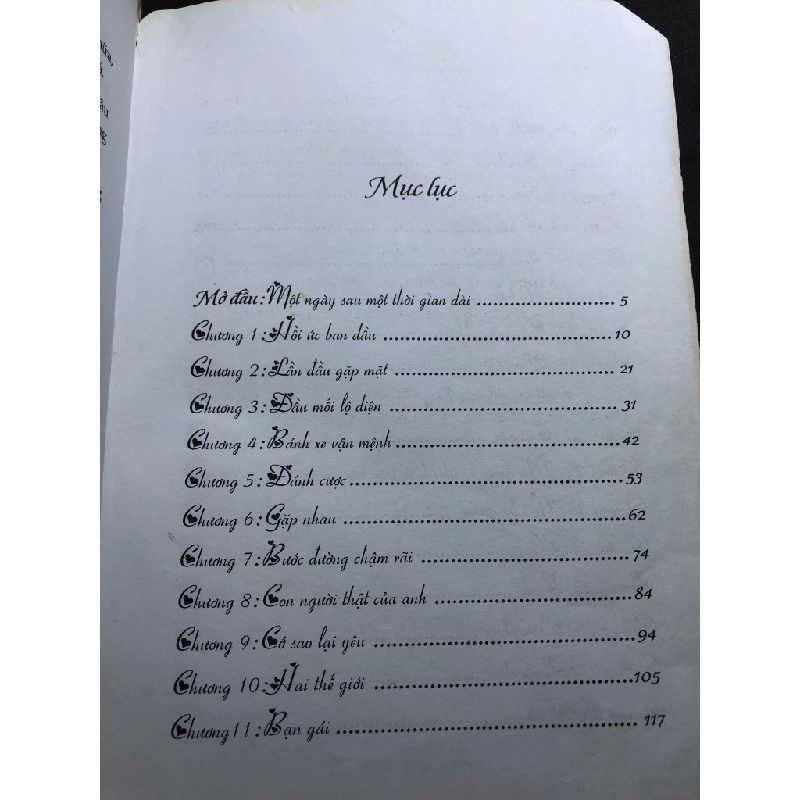 Mục lục
Mở đầu: Một ngày sau một thời gian dài ........................ 5
Chương 1: Hồi ức ban đầu ........................ 10
Chương 2: Lần đầu gặp mặt ........................ 21
Chương 3: Đầu mối lộ diện ........................ 31
Chương 4: Bánh xe vận mệnh ........................ 42
Chương 5: Đánh cược ........................ 53
Chương 6: Gặp nhau ........................ 62
Chương 7: Bước đường chậm rãi ........................ 74
Chương 8: Con người thật của anh ........................ 84
Chương 9: Cớ sao lại yêu ........................ 94
Chương 10: Hai thế giới ........................ 105
Chương 11: Bạn gái ........................ 117